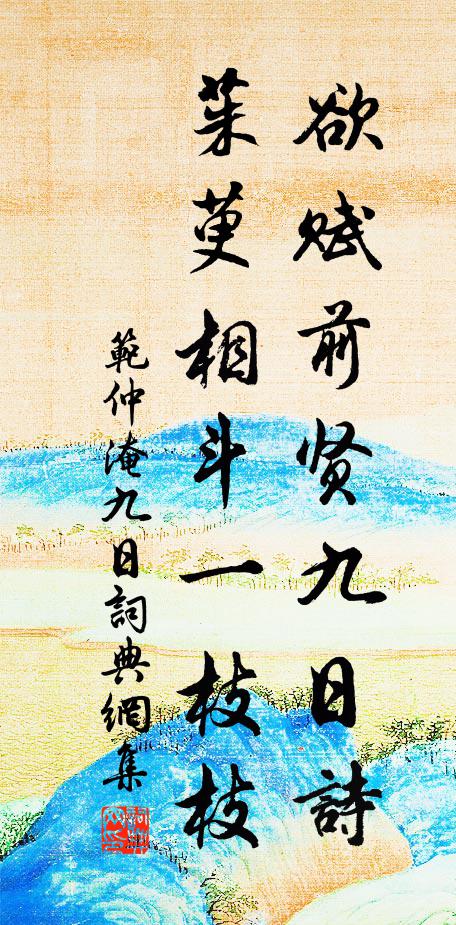 欲赋前贤九日詩
茱萸相斗一枝枝
範仲淹九日詞典網集